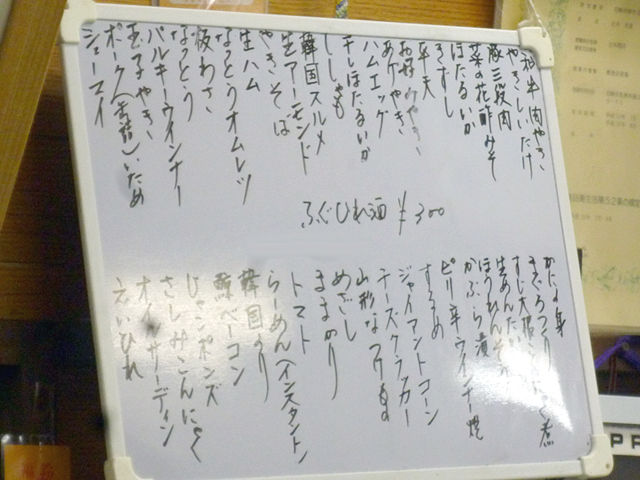 牛肉やき
やきしいたけ
豚三段肉
菜の花酢みそ
ほたるいか
きすし
平天
お好みやき
あげやき
ハムエッグ
干しほたるいか
ししゃも
韓国スルメ
生アーモンド
やきそば
生ハム
なっとうオムレツ
板わさ
なっとう
バルキーウインナー
玉子やき
ポークいため
シューマイ
ふぐひれ酒 ¥300
まぐろ
すじ大根こんにゃく煮
生あんだい
ほうれんそう
かぶら漬
ピリ辛ウインナー焼
するめ
ジャイアントコーン
チーズクラッカー
山形なつけもの
めざし
ままかり
トマト
らーめん(インスタント)
韓国のり
鯨ベーコン
じゃこポンズ
さしみこんにゃく
オイルサーディン
えいひれ